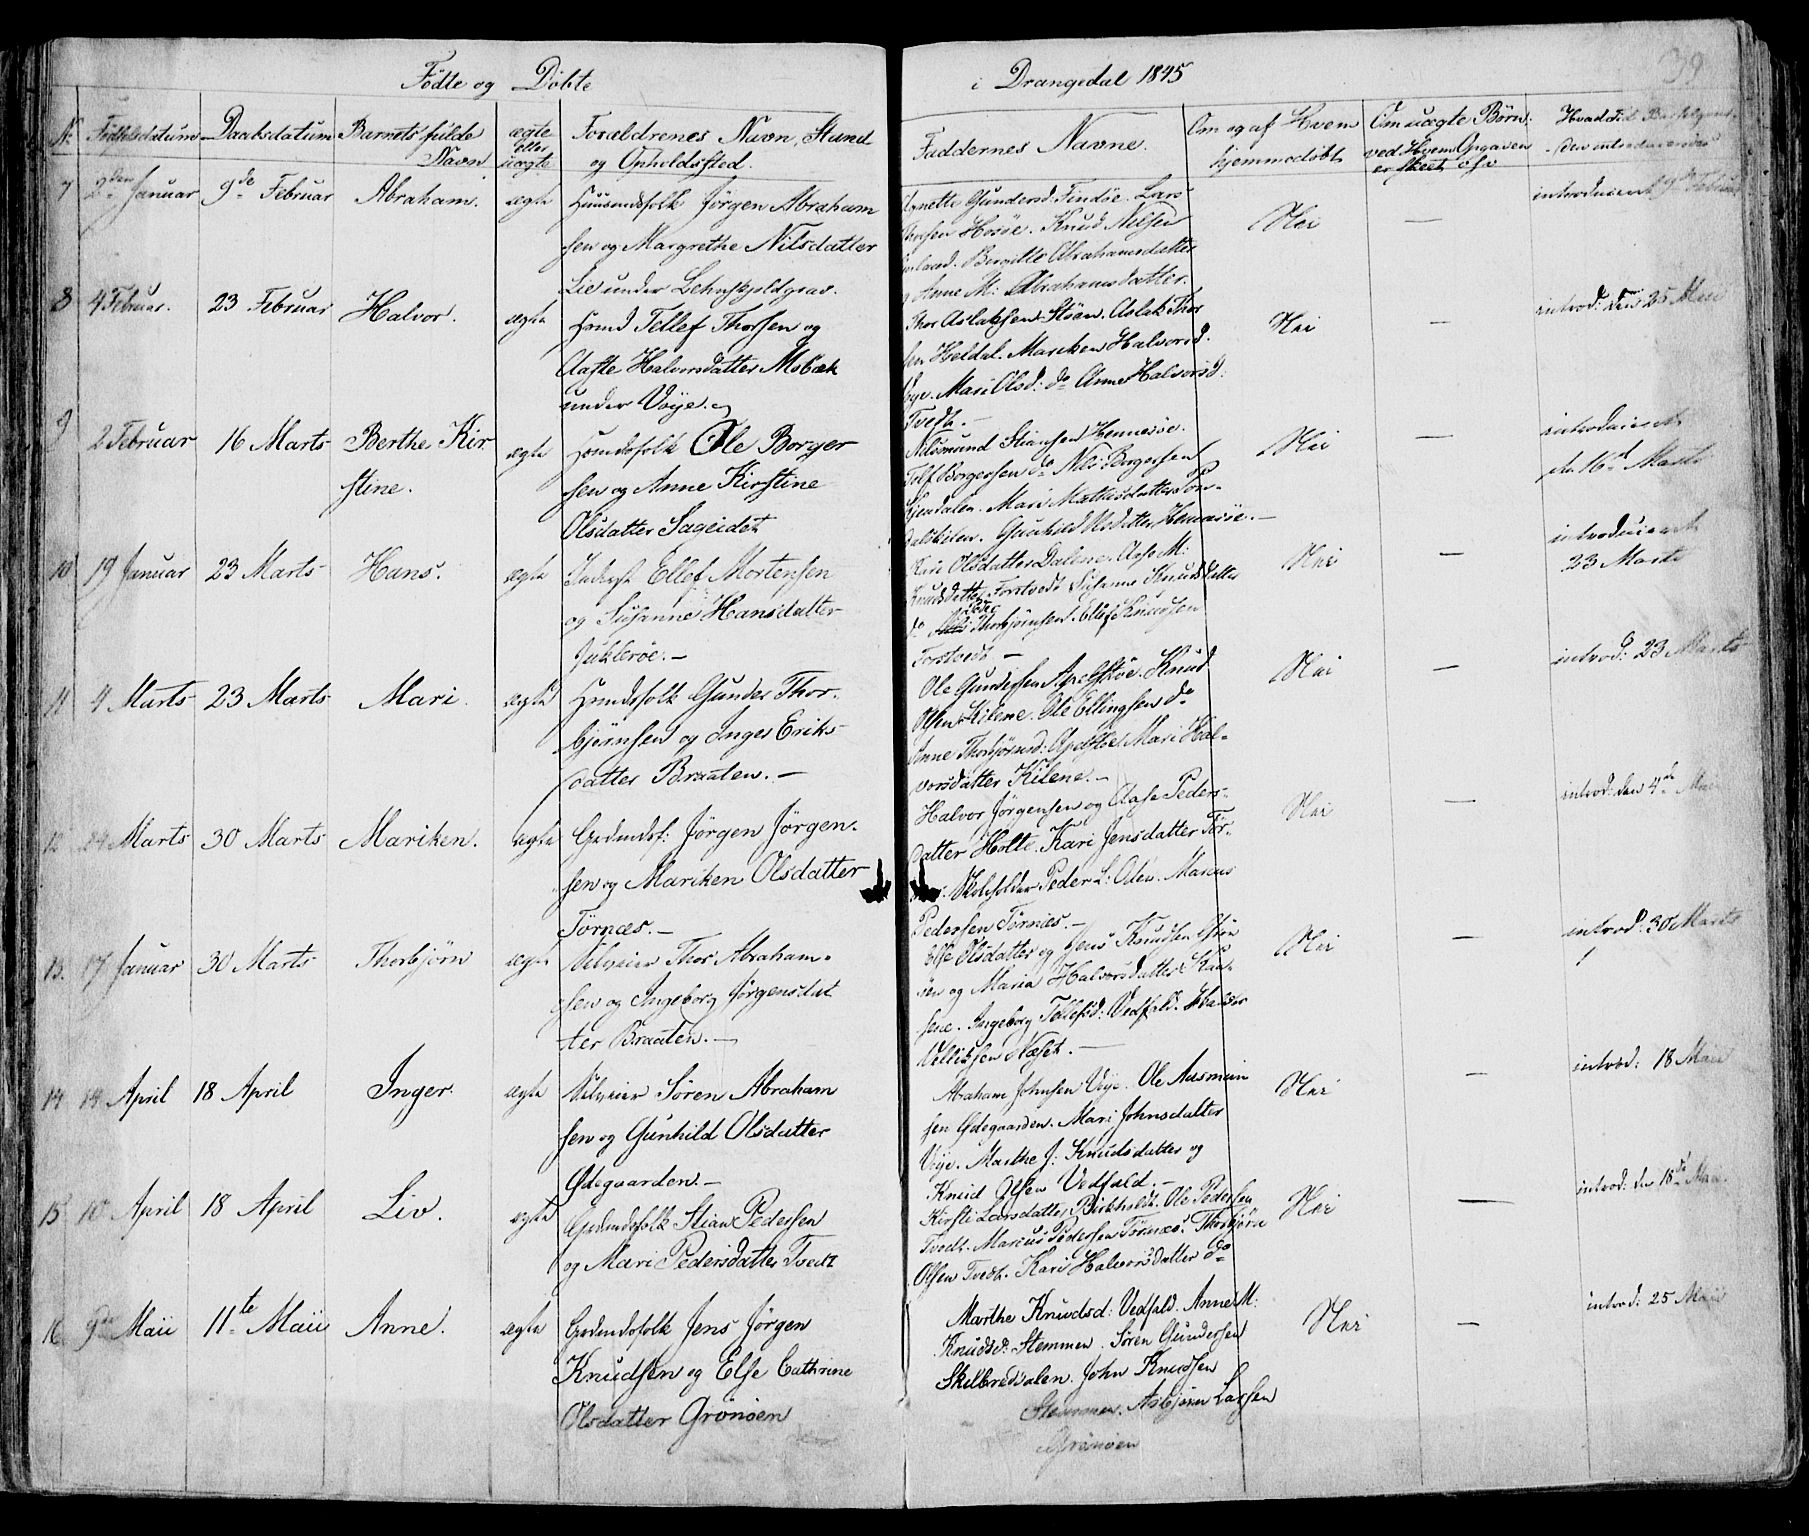 Fødte og Døbte i Drangedal 1845
39
No. Fødselsdatum Daabsdatum Barnets fulde Navn ægte eller uægte Forældrenes Navn, Stand og Opholdssted. Faddernes Navne. Om og af Hvem hjemmedøbt Om uægte Børn ved Hvem Opgaven er skeet
7 2den Januar 9de Februar Abraham. ægte Huusmdsfolk Jørgen Abraham
sen og Margrethe Nilsdatter
Lie under Lehnskjoldgrav.
Gunders: Findøe. Lars
Høsøe. Knud Nilsen
Birgitte Abrahamsdatter
Anne M: Abrahamsdatter.
Nei — introduceret 9de Februar
8 4 Februar. 23 Februar Halvor. ægte Hmd Tellef Thorsen og
Aaste Halvorsdatter Mobæk
under Voje.
Thor Aslaksen Støen. Aslak Thor
sen Heldal. Mariken Halvorsd.
Voje. Mari Olsd: do Anne Halvorsd:
Tvedt. —
Nei — introd: den 25 Maii
9 2 Februar 16 Marts Berthe Kir
stine.
ægte Hmdsfolk Ole Borger
sen og Anne Kirstine
Olsdatter Sageidet
Stiansen Hennesøe.
Borgersen do Nils Borgersen
Mari Mathisdatter
Gunhild Hennesøe. —
Nei — introduceret
den 16d Marts
10 19 Januar 23 Marts Hans. ægte Ellef Mortensen
og Susanne Hansdatter
Juklerøe. —
Kari Olsdatter Dalene. Aase M:
Knudsdatter Forstvedt Knudsdatter
do Thorbjørnsen. Ellef Knudsen
Forstvedt —
Nei — introduceret
23 Marts
11 4 Marts 23 Marts Mari. ægte Hmdsfolk Gunder Thor
bjørnsen og Inger Eriks
datter Braaten. —
Ole Gundersen Apelstøe. Knud
Olsen Kilene. Ole Ellingsen do
Anne Thorbjørnsd: Apelstøe Mari Hal-
vorsdatter Kilene. —
Nei — introd: 23 Marts
12 Marts 30 Marts Mariken. ægte Grdmdsf: Jørgen Jørgen-
sen og Mariken Olsdatter
Tørnæs. —
Halvor Jørgensen og Aase Peders-
datter Holte. Kari Jensdatter Tør-
Skoleholder Peder L: Oden. Marcus
Pedersen Tørnæs. —
Nei — introd: den 4de Maii
13. 17 Januar 30 Marts Thorbjørn ægte Selveier Thor Abraham-
sen og Ingeborg Jørgensdat
ter Braaten. —
Else Olsdatter og Jens Knudsen
og Maria Halvorsdatter
Ingeborg Tellefsd: Vedfald. Halvor
Næset. —
Nei — introd: 30 Marts
14 April 18 April Inger. ægte Selveier Søren Abraham
sen og Gunhild Olsdatter
Ødegaarden. —
Abraham Johnsen Voje. Ole Aasmun
sen Ødegaarden. Mari Johnsdatter
Voje. Marthe J: Knudsdatter og
Knud Olsen Vedfald. —
Nei — introd: 18 Maii
15 10 April 18 April Liv. ægte Grdmdsfolk Stian Pedersen
og Mari Pedersdatter Tvedt
Kirsti Larsdatter Birkholdt. Ole Pedersen
Tvedt. Marcus Pedersen Tørnæs. Thorbjørn
Olsen Tvedt. Kari Halvorsdatter do
Nei — introd: den 18de Maii
16 9de Maii 11te Maii Anne. ægte Grdmdsfolk Jens Jørgen
Knudsen og Else Cathrine
Olsdatter Grønøen
Marthe Knudsd: Vedfald. Anne M:
Knudsd: Stemmen. Søren Gundersen
Skelbredalen. John Knudsen
Stemmen. Asbjørn Larsen
Grønøen
Nei — introd: 25 Maii